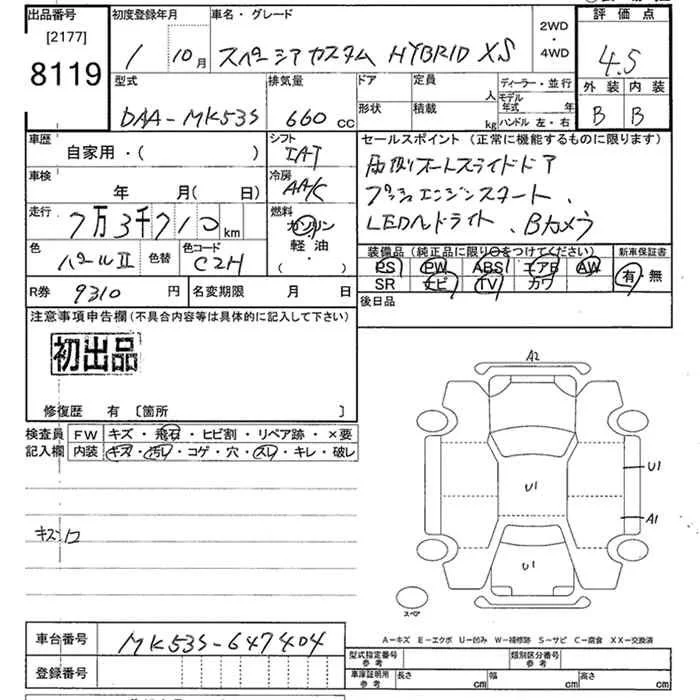 出品番号 初度登録年月 車名・グレード 2WD・4WD 評価点
[2177]
8119
1年 10月 スペーシアカスタム HYBRID XS 4.5
型式 排気量 ドア 定員 人 ディーラー・並行 外装 内装
DAA-MK53S 660 cc 形状 積載 kg モデル年式 年 ハンドル 左・右 B B
車歴 自家用・( ) シフト IAT セールスポイント (正常に機能するものに限ります)
車検 年 月(日) 冷房 AAC 両側オートスライドドア
走行 7万3千710km 燃料 ガソリン プッシュエンジンスタート、
軽・油・( ) LEDヘッドライト、Bカメラ
色 パールⅡ 色替 色コード CZH 装備品 (純正品に限り○をつけてください) 新車保証書
PS PW ABS エアB AW 有・無
R券 9310 円 名変期限 月 日 SR ナビ TV カワ
注意事項申告欄 (不具合内容等は具体的に記入して下さい) 後日品
初出品
修復歴 有 〔箇所 〕
検査員記入欄 FW キズ・飛石・ヒビ割・リペア跡・×要
内装 キズ・汚レ・コゲ・穴・スレ・キレ・破レ
A2
U1
U1
A1
U1
キズ
スペア
車台番号 MK53S-647404
登録番号
A-キズ E-エクボ U-凹み W-補修跡 S-サビ C-腐食 XX-交換済
型式指定番号 参考 類別区分番号 参考
車庫証明用 参考 長さ cm 幅 cm 高さ cm